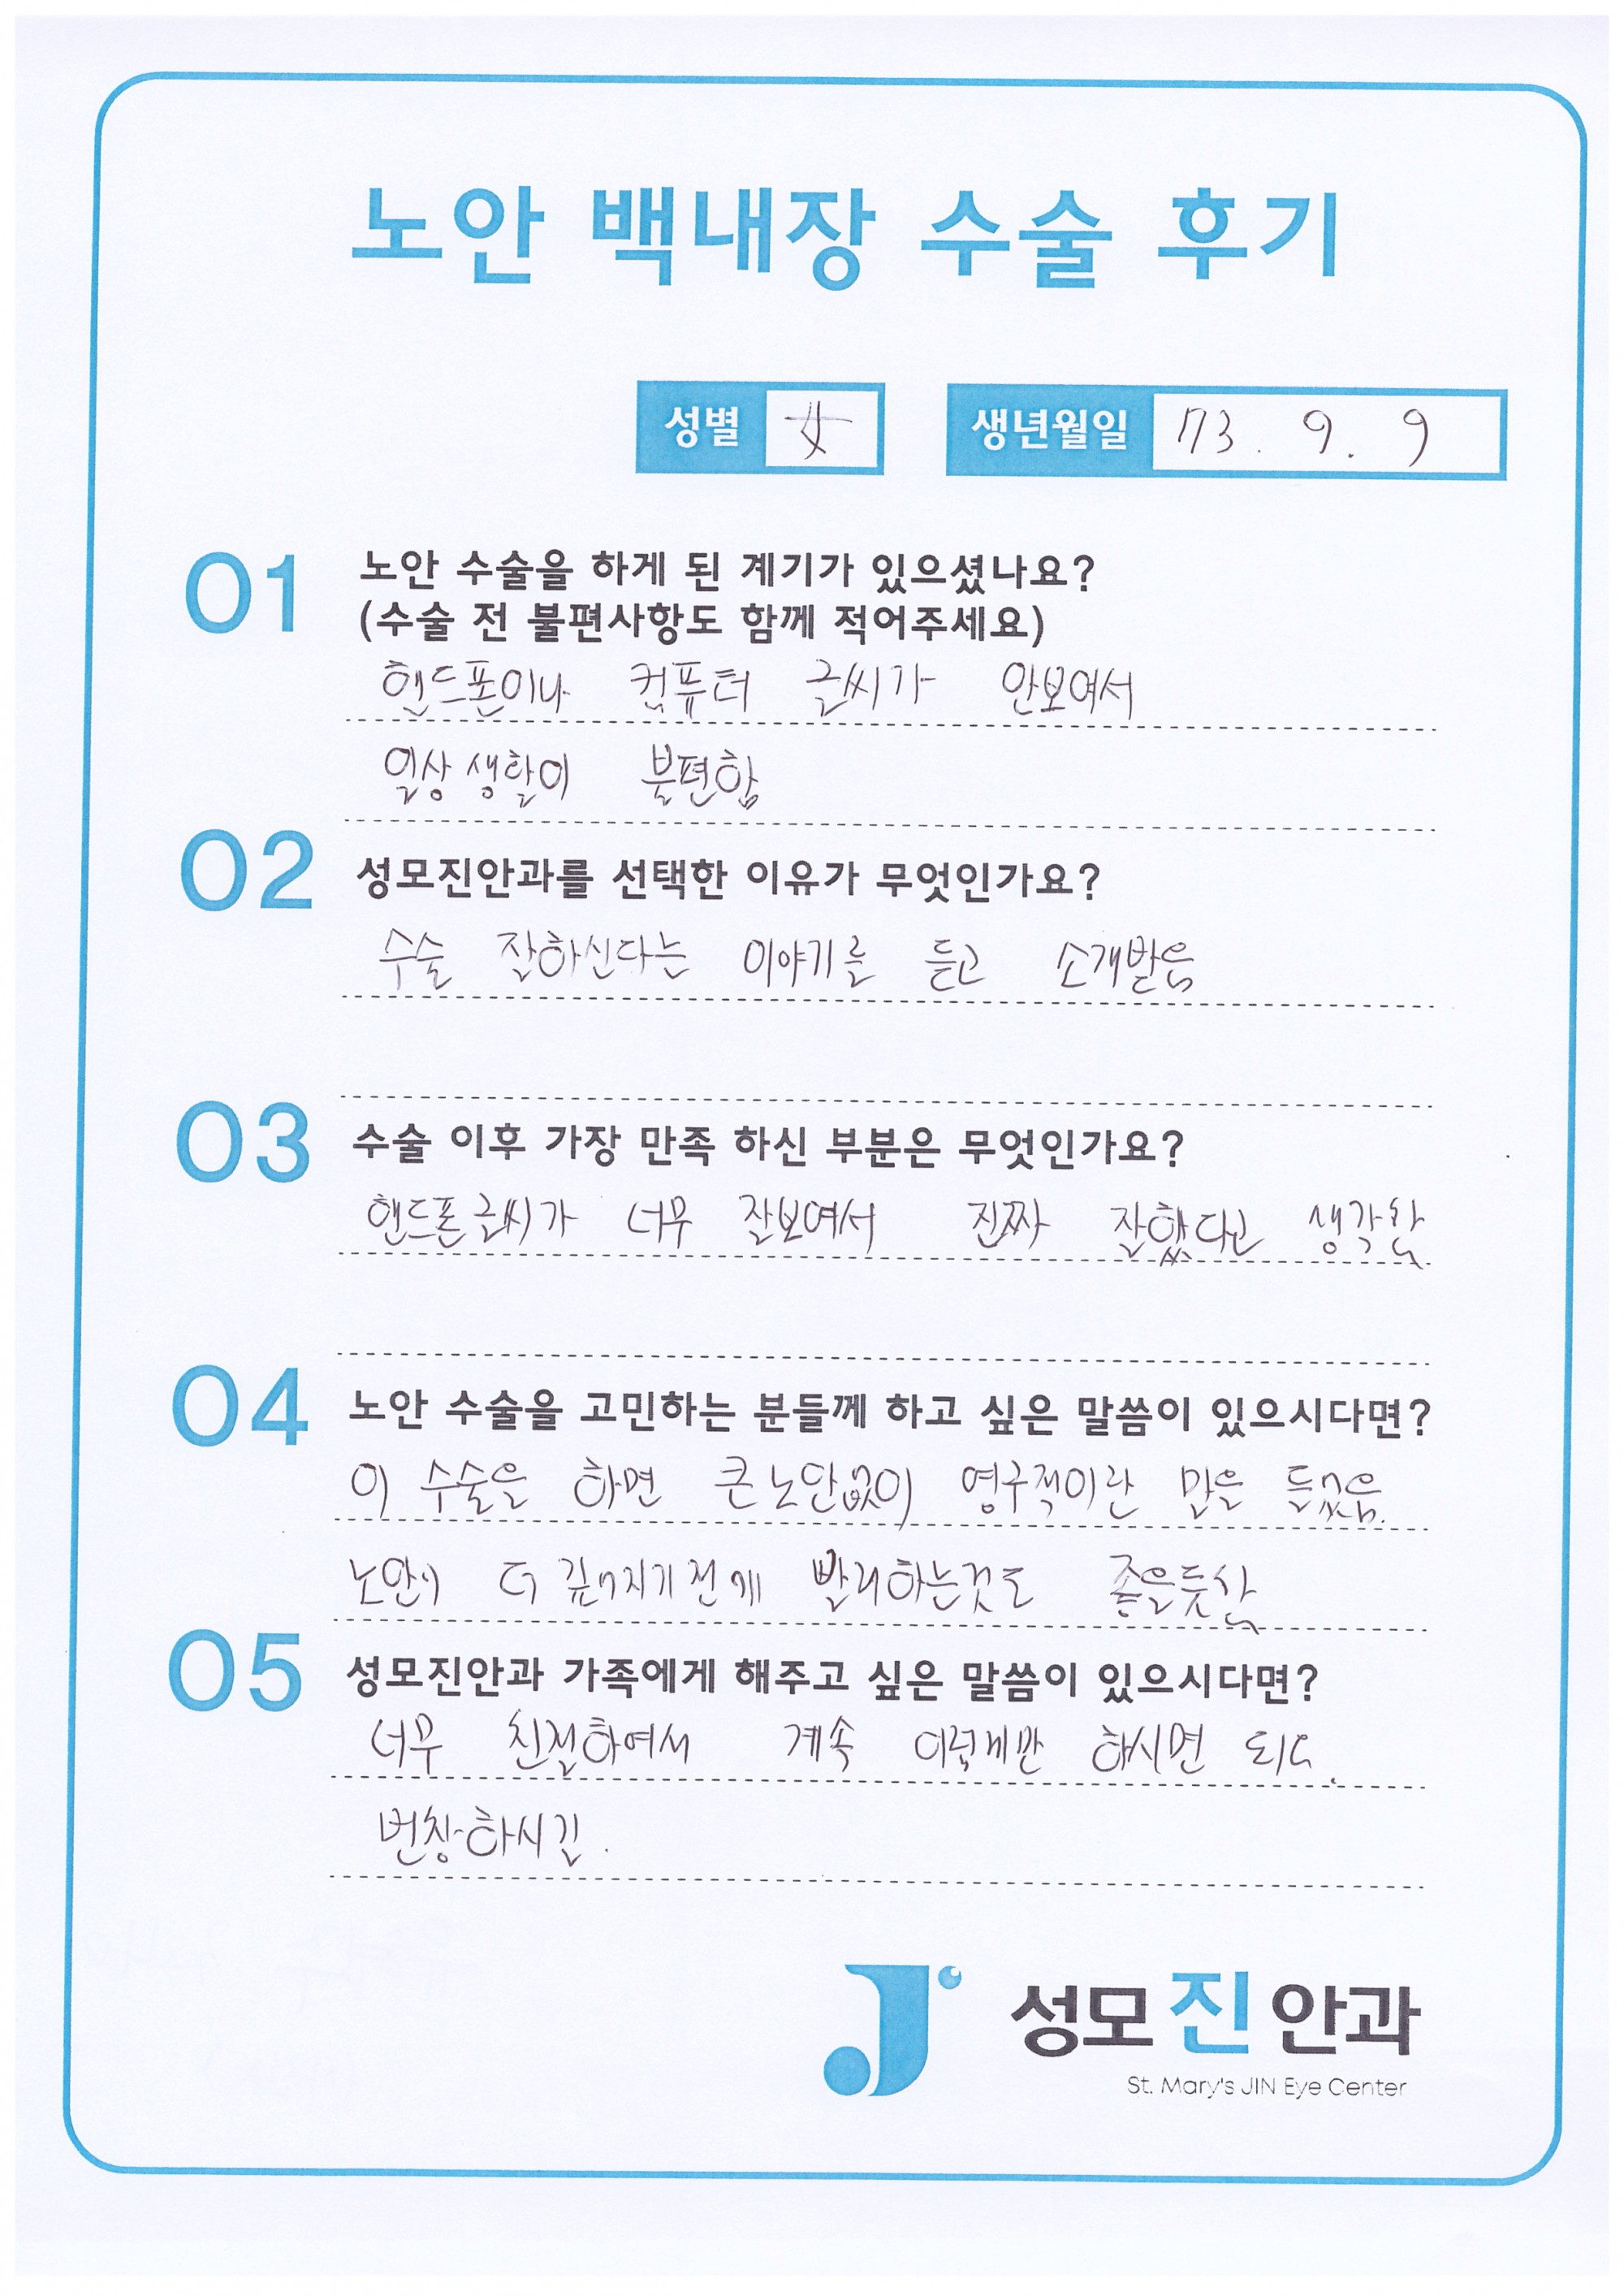 노안 백내장 수술 후기
성별 女 생년월일 73. 9. 9
01 노안 수술을 하게 된 계기가 있으셨나요?
(수술 전 불편사항도 함께 적어주세요)
핸드폰이나 컴퓨터 글씨가 안보여서
일상생활이 불편함
02 성모진안과를 선택한 이유가 무엇인가요?
수술 잘하신다는 이야기를 듣고 소개받음
03 수술 이후 가장 만족 하신 부분은 무엇인가요?
핸드폰글씨가 너무 잘보여서 진짜 잘했다고 생각함
04 노안 수술을 고민하는 분들께 하고 싶은 말씀이 있으시다면?
이 수술을 하면 큰노안없이 영구적이란 말을 들었음.
노안이 더 깊어지기전에 빨리하는것도 좋을듯함
05 성모진안과 가족에게 해주고 싶은 말씀이 있으시다면?
너무 친절하여서 계속 이렇게만 하시면 되고.
번창하시길.
성모진안과
St. Mary's JIN Eye Center